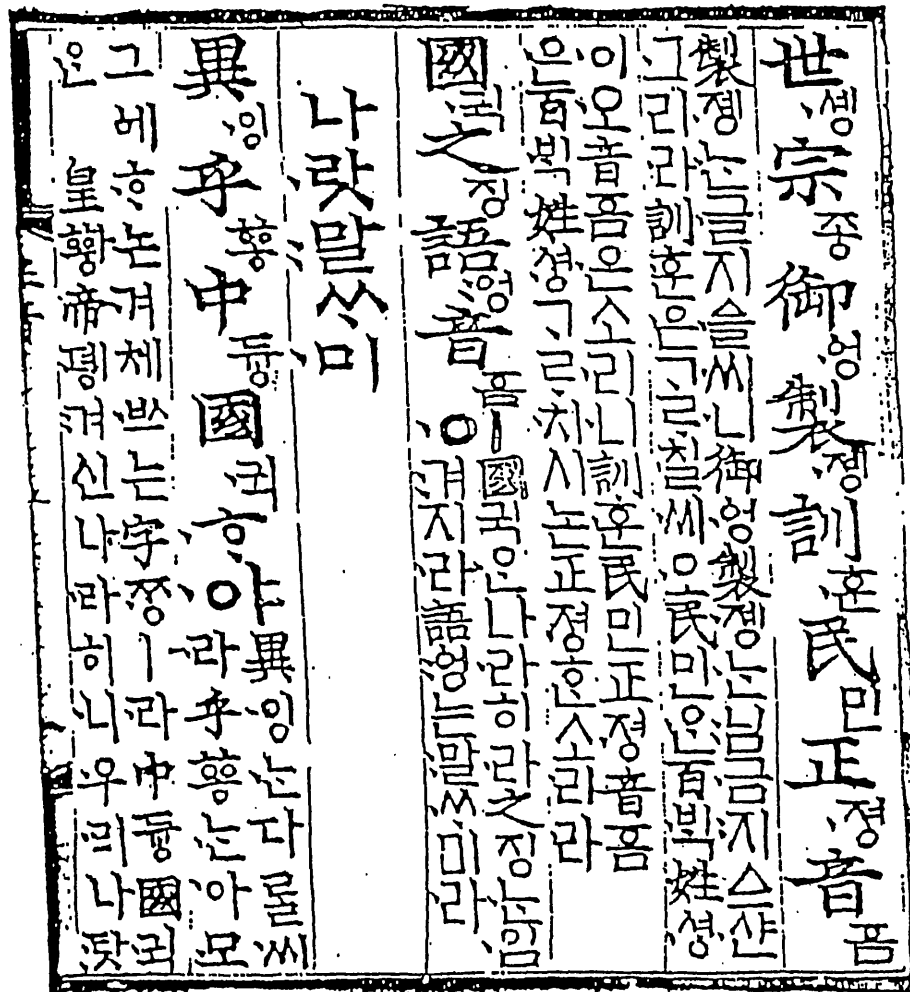 世솅宗종御ᅌᅥᆼ製졩訓훈民민正졍音ᅙᅳᆷ
製졩ᄂᆞᆫ글지ᅀᅳᆯ씨니御ᅌᅥᆼ製졩ᄂᆞᆫ님금지ᅀᅳ샨
그리라訓훈은ᄀᆞᄅᆞ칠씨오民민ᄋᆞᆫ百ᄇᆡᆨ姓셩
이오音ᅙᅳᆷ은소리니訓훈民민正졍音ᅙᅳᆷ
은百ᄇᆡᆨ姓셩ᄀᆞᄅᆞ치시논正졍ᄒᆞᆫ소리라
國귁之징語ᅌᅥᆼ音ᅙᅳᆷ이
國귁ᄋᆞᆫ나라히라之징ᄂᆞᆫ입
겨지라語ᅌᅥᆼ는말ᄊᆞ미라
나랏말ᄊᆞ미
異잉乎ᅘᅩᆼ中듕國귁ᄒᆞ야
異잉ᄂᆞᆫ다ᄅᆞᆯ씨
라乎ᅘᅩᆼᄂᆞᆫ아모
그ᅌᅦᄒᆞ논겨체ᄡᅳ는字ᄍᆞᆼㅣ라中듕國귁
ᄋᆞᆫ皇ᅘᅪᆼ帝뎽겨신나라히니우리나랏